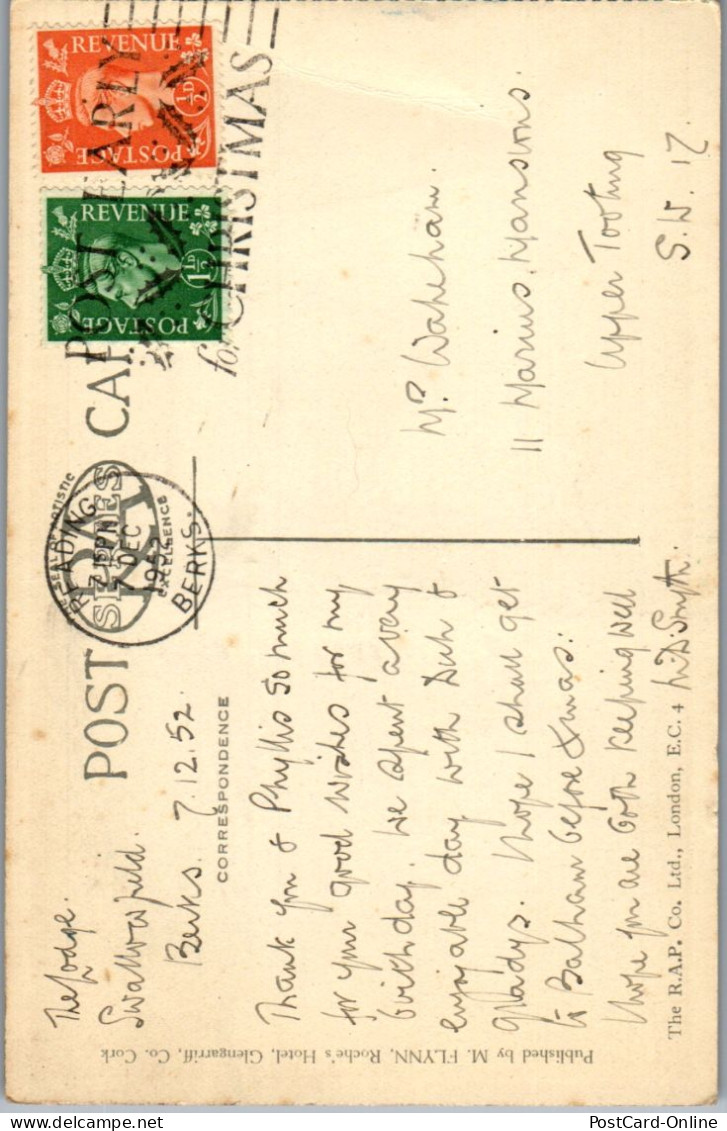 POST CARD
THE SEAL OF ARTISTIC
SERIES
EXCELLENCE
READING
7.15PM
7 DEC
1952
BERKS.
POST EARLY
for CHRISTMAS
REVENUE
½D
POSTAGE
REVENUE
1½D
POSTAGE
The Lodge.
Swallowfield.
Berks. 7.12.52.
CORRESPONDENCE
Thank you & Phyllis so much
for your good wishes for my
birthday. We spent a very
enjoyable day with &
Gladys. I hope I shall get
to Balham before Xmas.
I hope you are both keeping well
Smyth.
Mr Wakeham.
11 Marius Mansions.
Upper Tooting
S.W. 17
The R.A.P. Co. Ltd., London, E.C. 4
Published by M. FLYNN, Roche's Hotel, Glengarriff, Co. Cork
PostCard-Online
PostCard-Online.com